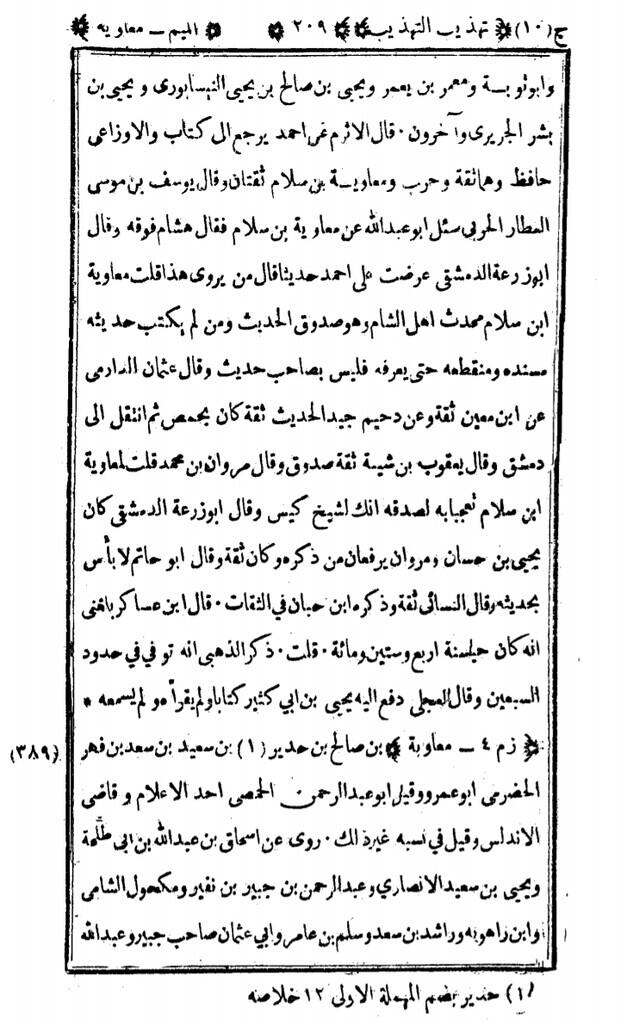 ج (١٠) تهذيب التهذيب ٢٠٩ الميم ـ معاويه
وابوتوبة ومعمر بن يعمر ويحيى بن صالح بن يحيى النيسابورى ويحيى بن
بشر الجريرى وآخرون ٠ قال الاثرم عن احمد يرجع الى كتاب والاوزاعى
حافظ وهما ثقة وحرب ومعاوية بن سلام ثقتان وقال يوسف بن موسى
العطار الحربى سئل ابو عبدالله عن معاوية بن سلام فقال هشام فوقه وقال
ابوزرعة الدمشقى عرضت على احمد حديثا قال من يروى هذا قلت معاوية
ابن سلام محدث اهل الشام وهو صدوق الحديث ومن لم يكتب حديثه
مسنده ومنقطعه حتى يعرفه فليس بصاحب حديث وقال عثمان الدارمى
عن ابن معين ثقة وعن دحيم جيد الحديث ثقة كان بحمص ثم انتقل الى
دمشق وقال يعقوب بن شيبة ثقة صدوق وقال مروان بن محمد قلت لمعاوية
ابن سلام تعجبا به لصدقه انك لشيخ كيس وقال ابوزرعة الدمشقى كان
يحيى بن حسان ومروان يرفعان من ذكره وكان ثقة وقال ابو حاتم لا بأس
بحديثه وقال النسائى ثقة وذكره ابن حبان في الثقات ٠ قال ابن عساكر بلغنى
انه كان حيا سنة اربع وستين ومائة ٠ قلت ٠ ذكر الذهبى انه توفي في حدود
السبعين وقال العجلى دفع اليه يحيى بن ابي كثير كتابا ولم يقرأه ولم يسمعه *
(٣٨٩) زم ٤ ـ معاوية بن صالح بن حدير (١) بن سعيد بن سعد بن فهر
الحضرمى ابو عمرو وقيل ابو عبدالرحمن الحمصى احد الاعلام وقاضى
الاندلس وقيل في نسبه غير ذلك ٠ روى عن اسحاق بن عبدالله بن ابى طلحة
ويحيى بن سعيد الانصاري وعبدالرحمن بن جبير بن نفير ومكحول الشامى
وابن راهويه وراشد بن سعد وسلم بن عامر وابي عثمان صاحب جبير وعبدالله
(١) حدير بضم المهملة الاولى ١٢ خلاصه